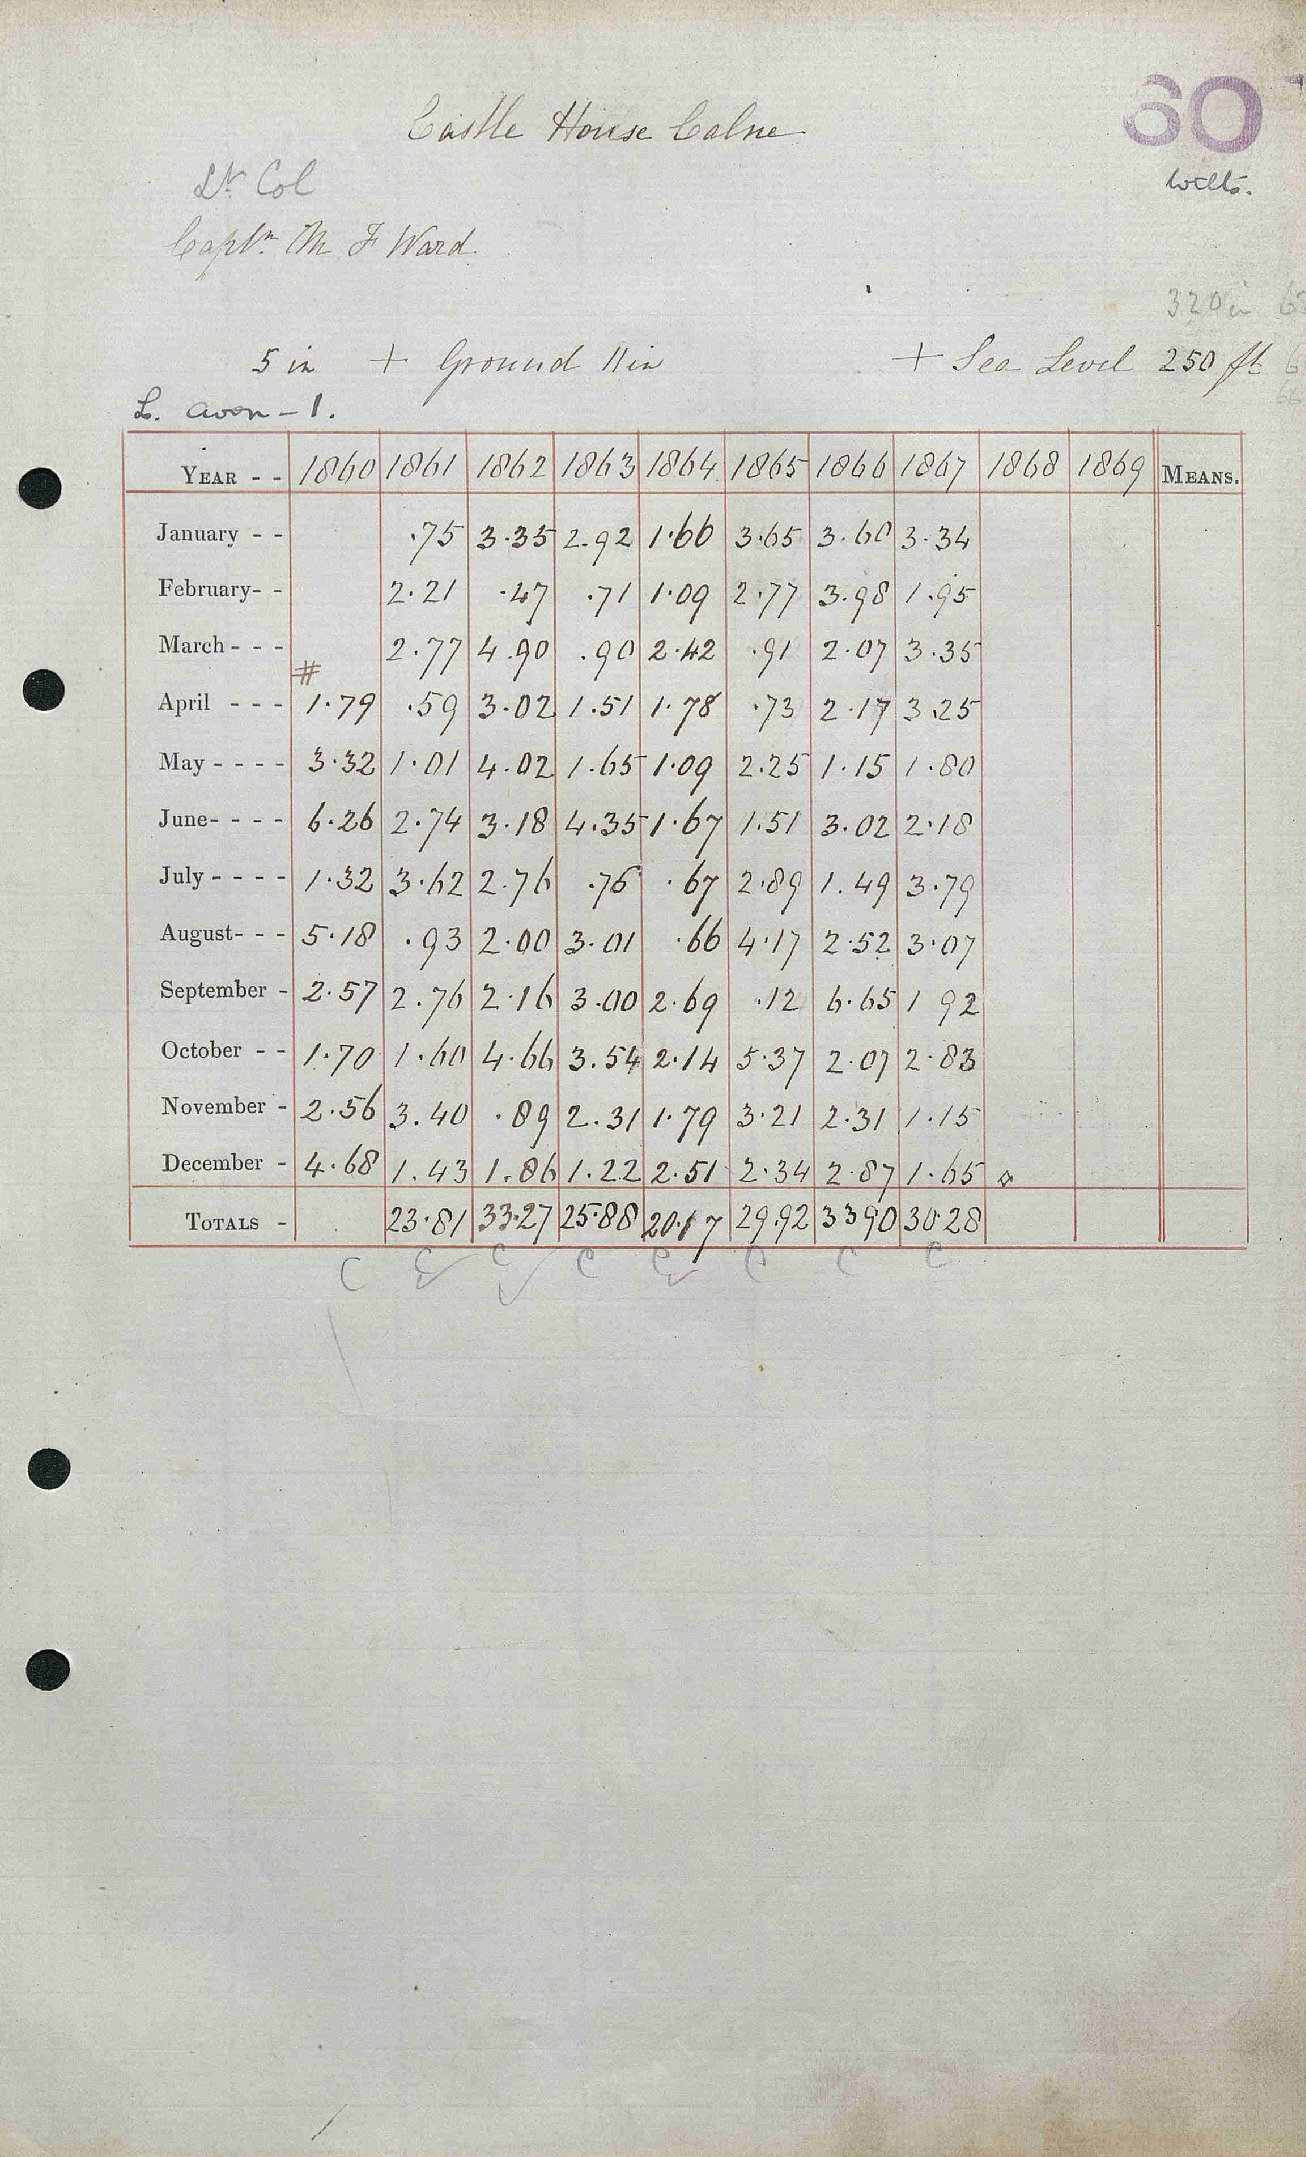 60
Castle House Calne
Wilts.
Lt Col
Captn M F Ward
320 in
5 in + Ground 11 in + Sea Level 250 ft
L. Avon - 1.
YEAR - - 1860 1861 1862 1863 1864 1865 1866 1867 1868 1869 MEANS.
January - - .75 3.35 2.92 1.66 3.65 3.60 3.34
February - - 2.21 .47 .71 1.09 2.77 3.98 1.95
March - - - 2.77 4.90 .90 2.42 .91 2.07 3.35
#
April - - - 1.79 .59 3.02 1.51 1.78 .73 2.17 3.25
May - - - - 3.32 1.01 4.02 1.65 1.09 2.25 1.15 1.80
June - - - - 6.26 2.74 3.18 4.35 1.67 1.51 3.02 2.18
July - - - - 1.32 3.62 2.76 .76 .67 2.89 1.49 3.79
August - - - 5.18 .93 2.00 3.01 .66 4.17 2.52 3.07
September - 2.57 2.76 2.16 3.00 2.69 .12 6.65 1 92
October - - 1.70 1.60 4.66 3.54 2.14 5.37 2.07 2.83
November - 2.56 3.40 .89 2.31 1.79 3.21 2.31 1.15
December - 4.68 1.43 1.86 1.22 2.51 2.34 2.87 1.65
TOTALS - 23.81 33.27 25.88 20.17 29.92 33 90 30.28
C C C C C C C C